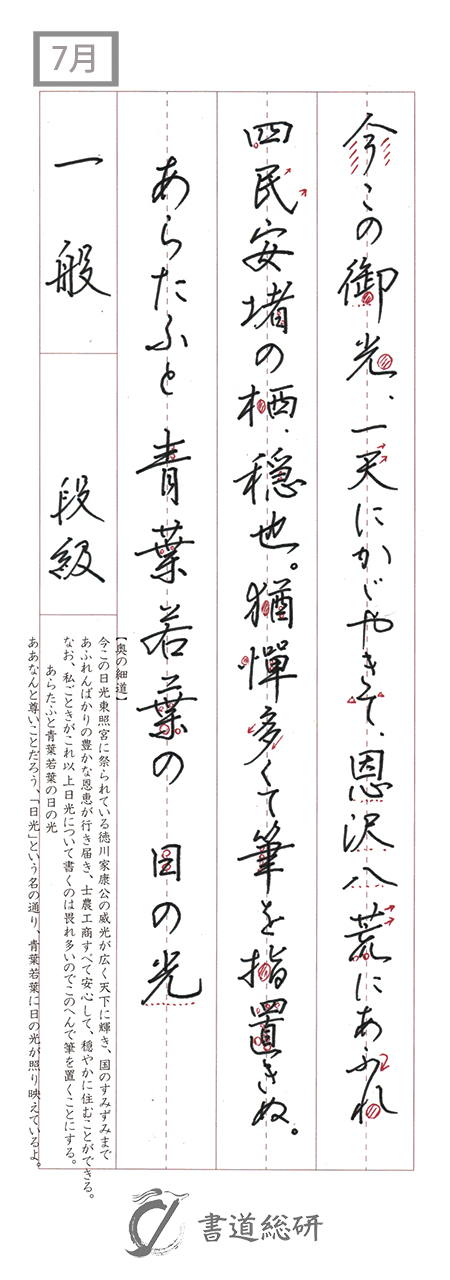 7月
今この御光、一天にかゞやきて、恩沢八荒にあふれ
四民安堵の栖、穏也。猶憚多くて筆を指置きぬ。
あらたふと青葉若葉の 日の光
一般
段級
【奥の細道】
今この日光東照宮に祭られている徳川家康公の威光が広く天下に輝き、国のすみずみまで
あふれんばかりの豊かな恩恵が行き届き、士農工商すべて安心して、穏やかに住むことができる。
なお、私ごときがこれ以上日光について書くのは畏れ多いのでこのへんで筆を置くことにする。
あらたふと青葉若葉の日の光
ああなんと尊いことだろう、「日光」という名の通り、青葉若葉に日の光が照り映えているよ。
書道総研